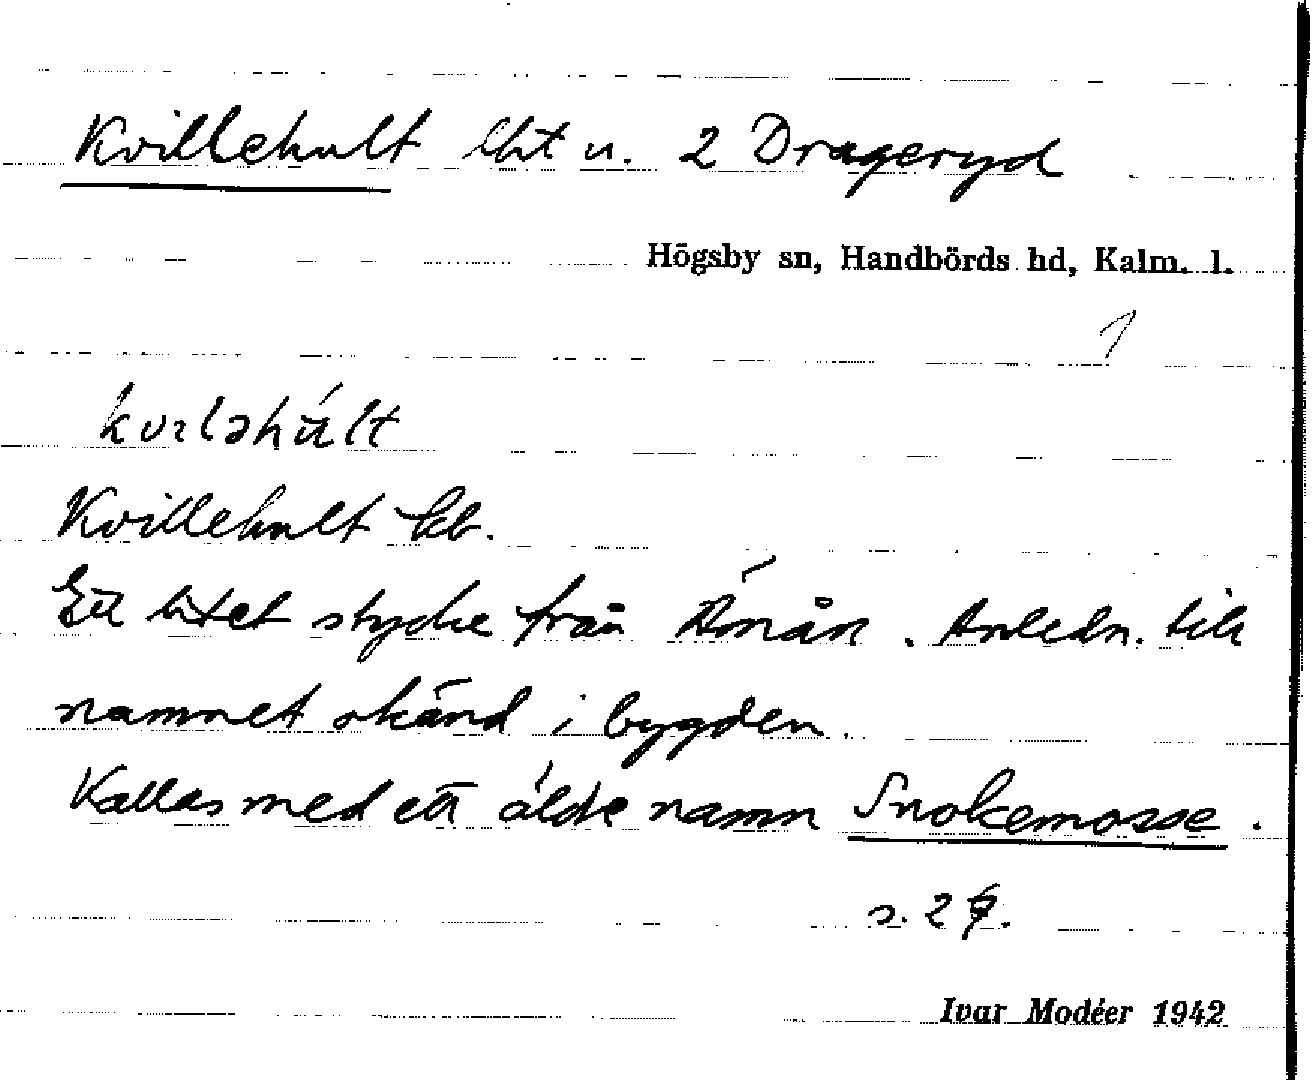 Kvillehult lht u. 2 Drageryd
Högsby sn, Handbörds hd, Kalm. l.
1
Kvillehult kb.
Ett litet stycke från Åmån. Anledn. till
namnet okänd i bygden.
Kallas med ett äldre namn Snokemosse.
s. 29.
Ivar Modéer 1942